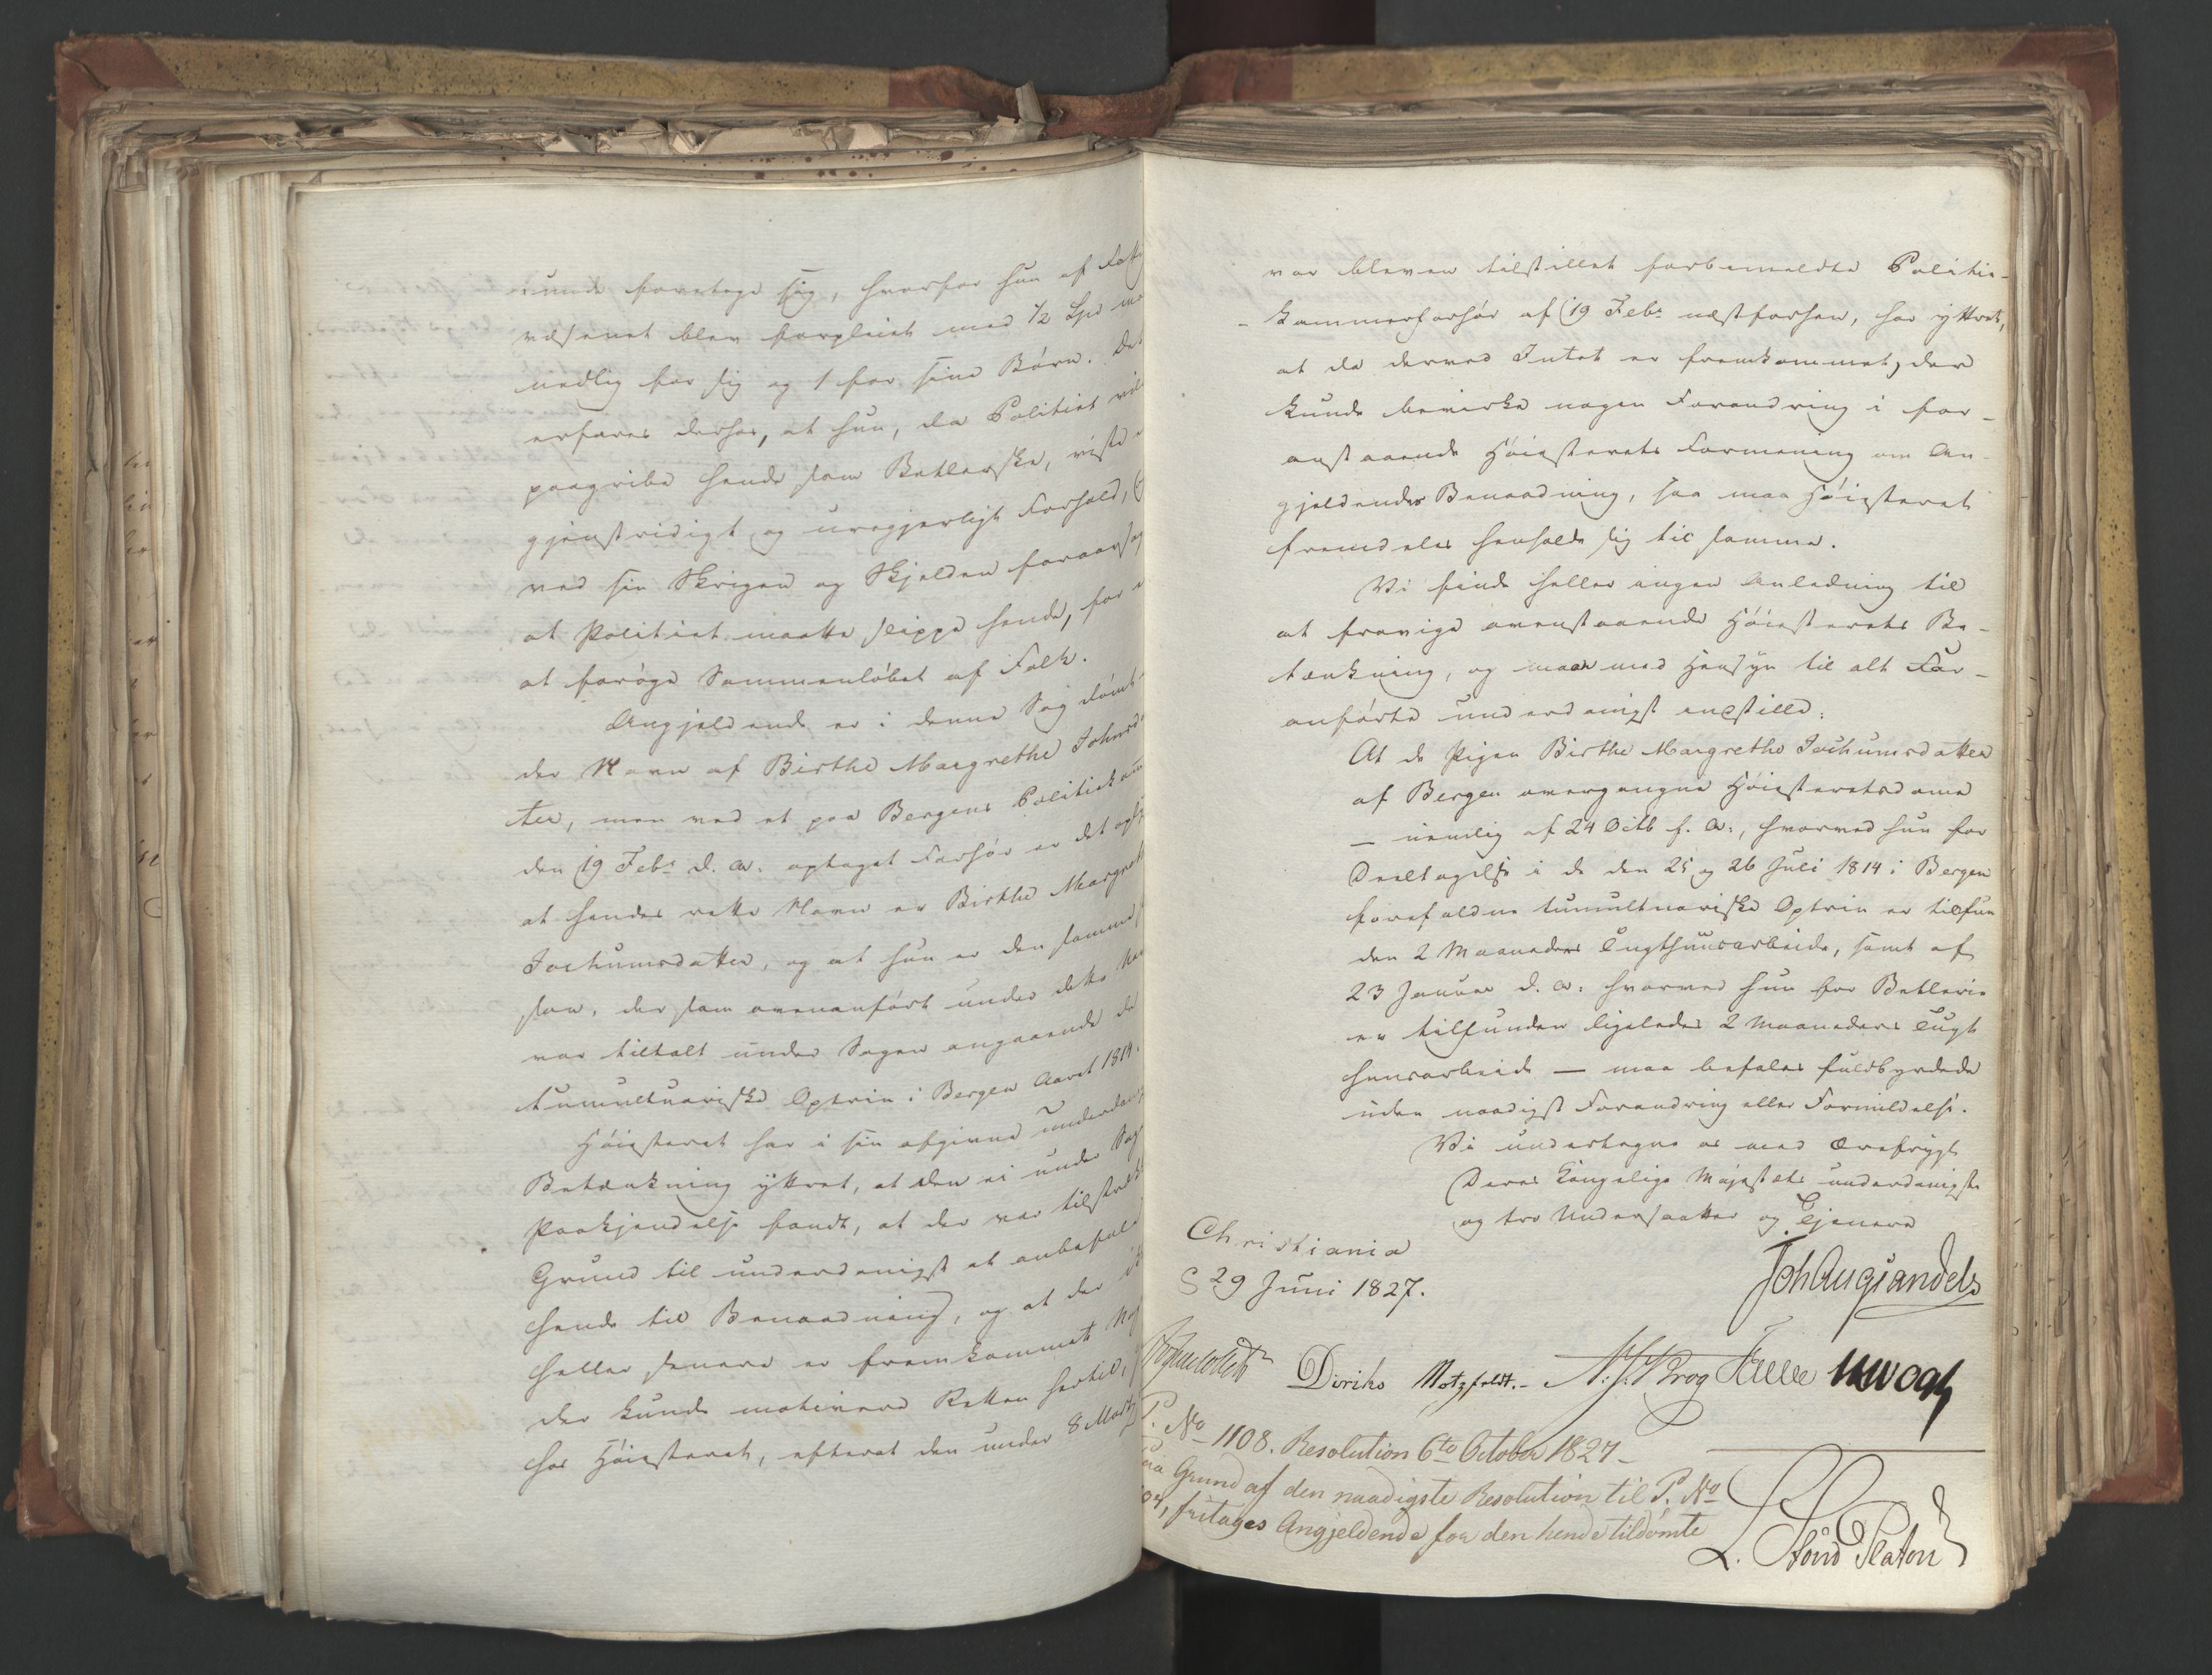 kunde foretage sig, hvorfor hun af Fatti
væsenet blev forpleiet med 1/2 Spd maa
nedlig for sig og 1 for sine Børn. Det
erfares derhos, at hun, da Politiet vil
paagribe hende som Betlerske, viste e
gjenstridigt og uregjerligt Forhold,
ved sin Skrigen og Skjelden foraarsag
at Politiet maatte slippe hende, for e
at forøge Sammenløbet af Folk.
Angjeldende er i denne Sag dømt
der Navn af Birthe Margrethe Johnsd
ter, men ved et paa Bergens Politiekam
den 19 Febr d. A. optaget Forhør er det oply
at hendes rette Navn er Birthe Margreth
Jochumsdatter, og at hun er den samme
son, der som ovenanført under dette Na
var tiltalt under Sagen angaaende de
tumultuariske Optrin i Bergen Aaret 1814.
Høiesteret har i sin afgivne underdan
Betænkning yttret, at den ei under Sag
Paakjendelse fandt, at der var tilstræk
Grund til underdanigst at anbefale
hende til Benaadning, og at der i
heller senere er fremkommet Nog
der kunde motivere Retten hertil,
har Høiesteret, efterat den under 8 Marts
var bleven tilstillet forbemeldte Politie-
- kammerforhør af 19 Febr næstforhen, har yttret,
at da derved Intet er fremkommet, der
kunde bevirke nogen Forandring i for-
anstaaende Høiesterets Formening om An-
gjeldendes Benaadning, saa maa Høiesteret
fremdeles henholde sig til samme.
Vi finde heller ingen Anledning til
at fravige ovenstaaende Høiesterets Be-
tænkning, og maae med Hensyn til alt For-
anførte underdanigst indstille:
At de Pigen Birthe Margrethe Jochumsdatter
af Bergen overgangne Høiesteretsdomme
— nemlig af 24 Octb f. A:, hvorved hun for
Deeltagelse i de den 25 og 26 Juli 1814 i Bergen
forefaldne tumultuariske Optrin er tilfun
den 2 Maaneders Tugthuusarbeide, samt af
23 Januar d. A: hvorved hun for Betlerie
er tilfunden ligeledes 2 Maaneders Tugt
huusarbeide — maa befales fuldbyrdede
uden naadigst Forandring eller Formildelse.
Vi undertegne os med Ærefrygt
Deres Kongelige Majestæts underdanigste
og tro Undersaatter og Tjenere
Christiania
d 29 Juni 1827.
Joh Aug Sandels
Diriks Motzfeldt.- N. J. Krog
P. No 1108. Resolution 6te October 1827 -
Paa Grund af den naadigste Resolution til P. No
fritages Angjeldende for den hende tildømte
L. Stoud Platou